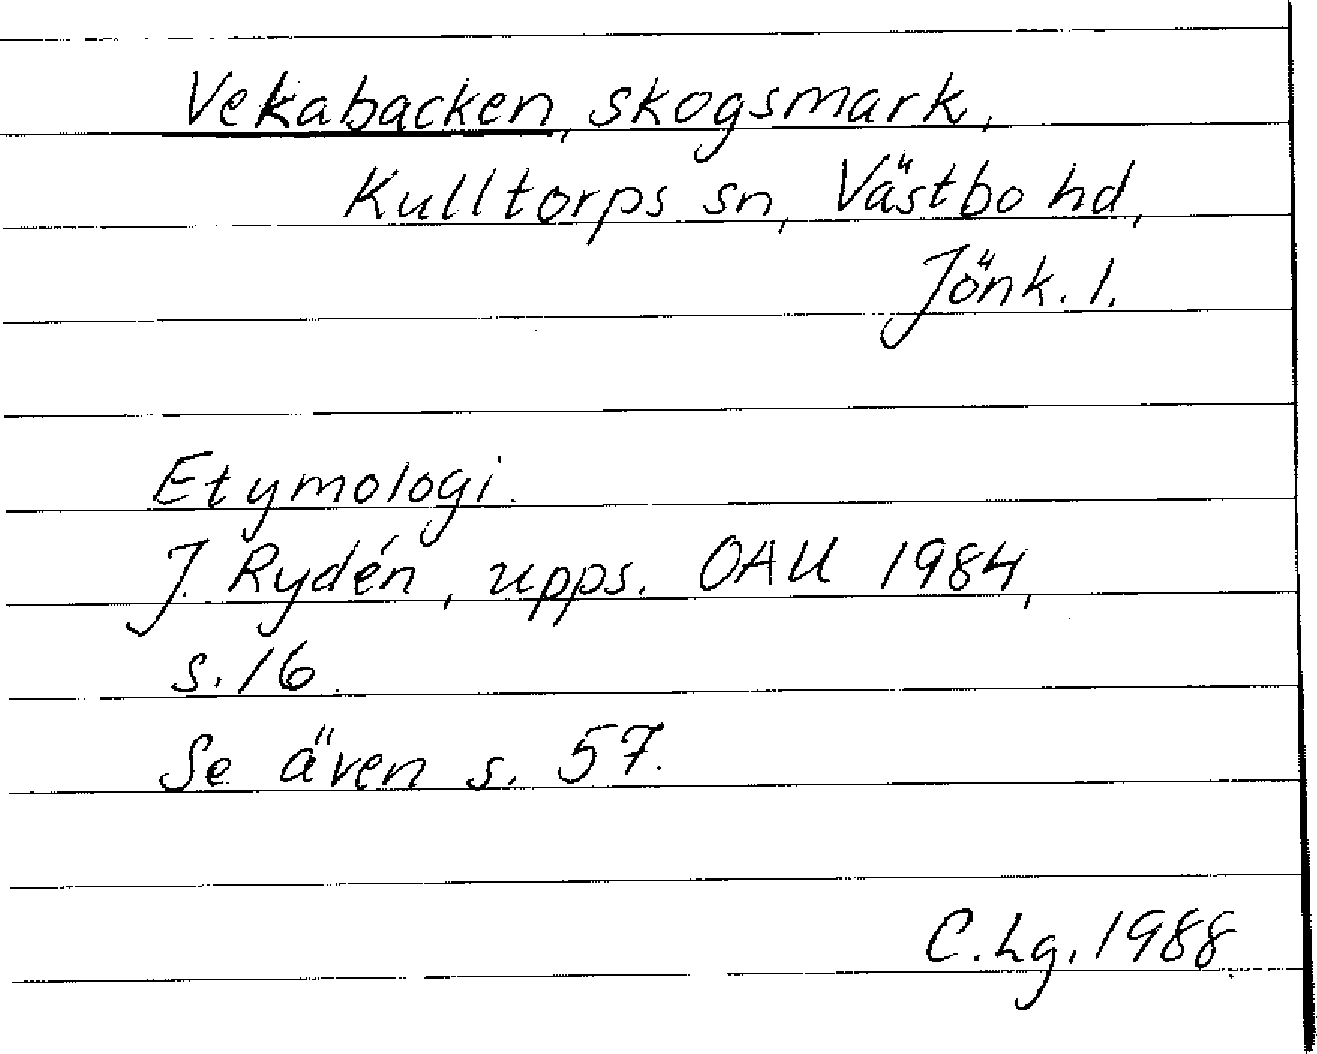 Vekabacken, skogsmark,
Kulltorps sn, Västbo hd,
Jönk. l.
Etymologi.
J. Rydén, upps. OAU 1984,
s. 16.
Se även s. 57.
C. Lg. 1988.